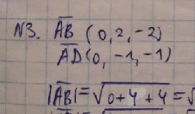 N3. AB (0, 2, -2)
AD (0, -1, -1)
|AB| = √0+4+4 = √